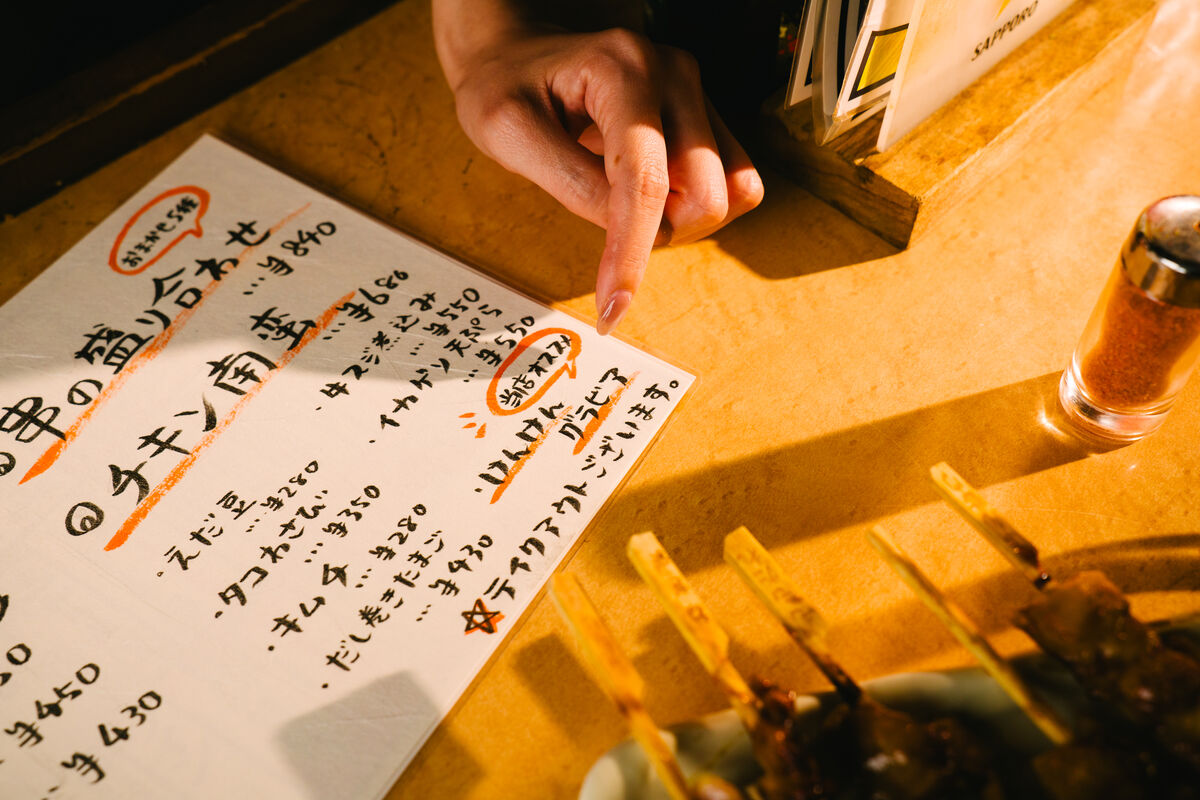 おまかせ5種
串の盛り合わせ
…¥840
◎チキン南蛮
…¥680
・牛スジ煮込み
…¥550
・イカゲソ天ぷら
…¥550
当店オススメ
グラビア
・えだ豆
…¥280
・タコわさび
…¥350
・キムチ
…¥280
・だし巻きたまご
…¥430
☆テイクアウトございます。
¥450
¥430
SAPPORO